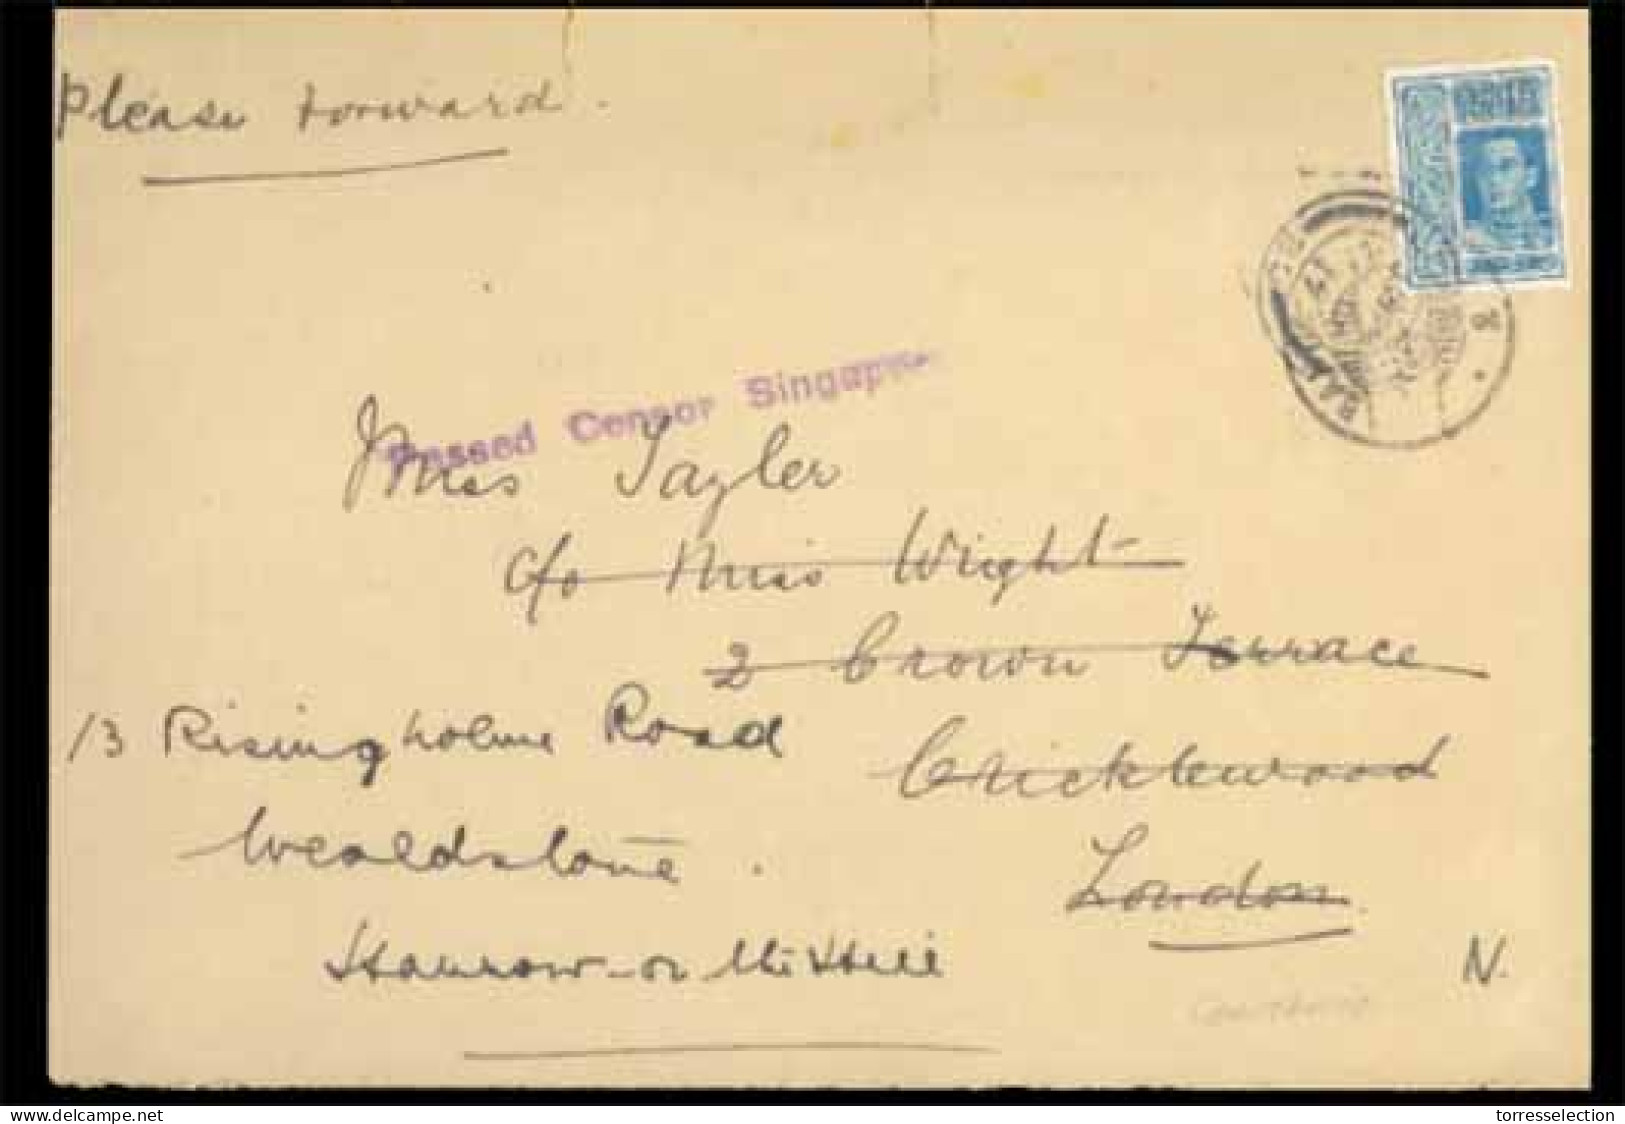 Please forward.
Passed Censor Singapore
Miss Tayler
c/o Miss Wright
2 Crown Terrace
Cricklewood
London
N.
13 Risingholme Road
Wealdstone.
Harrow-on the Hill
torresselection